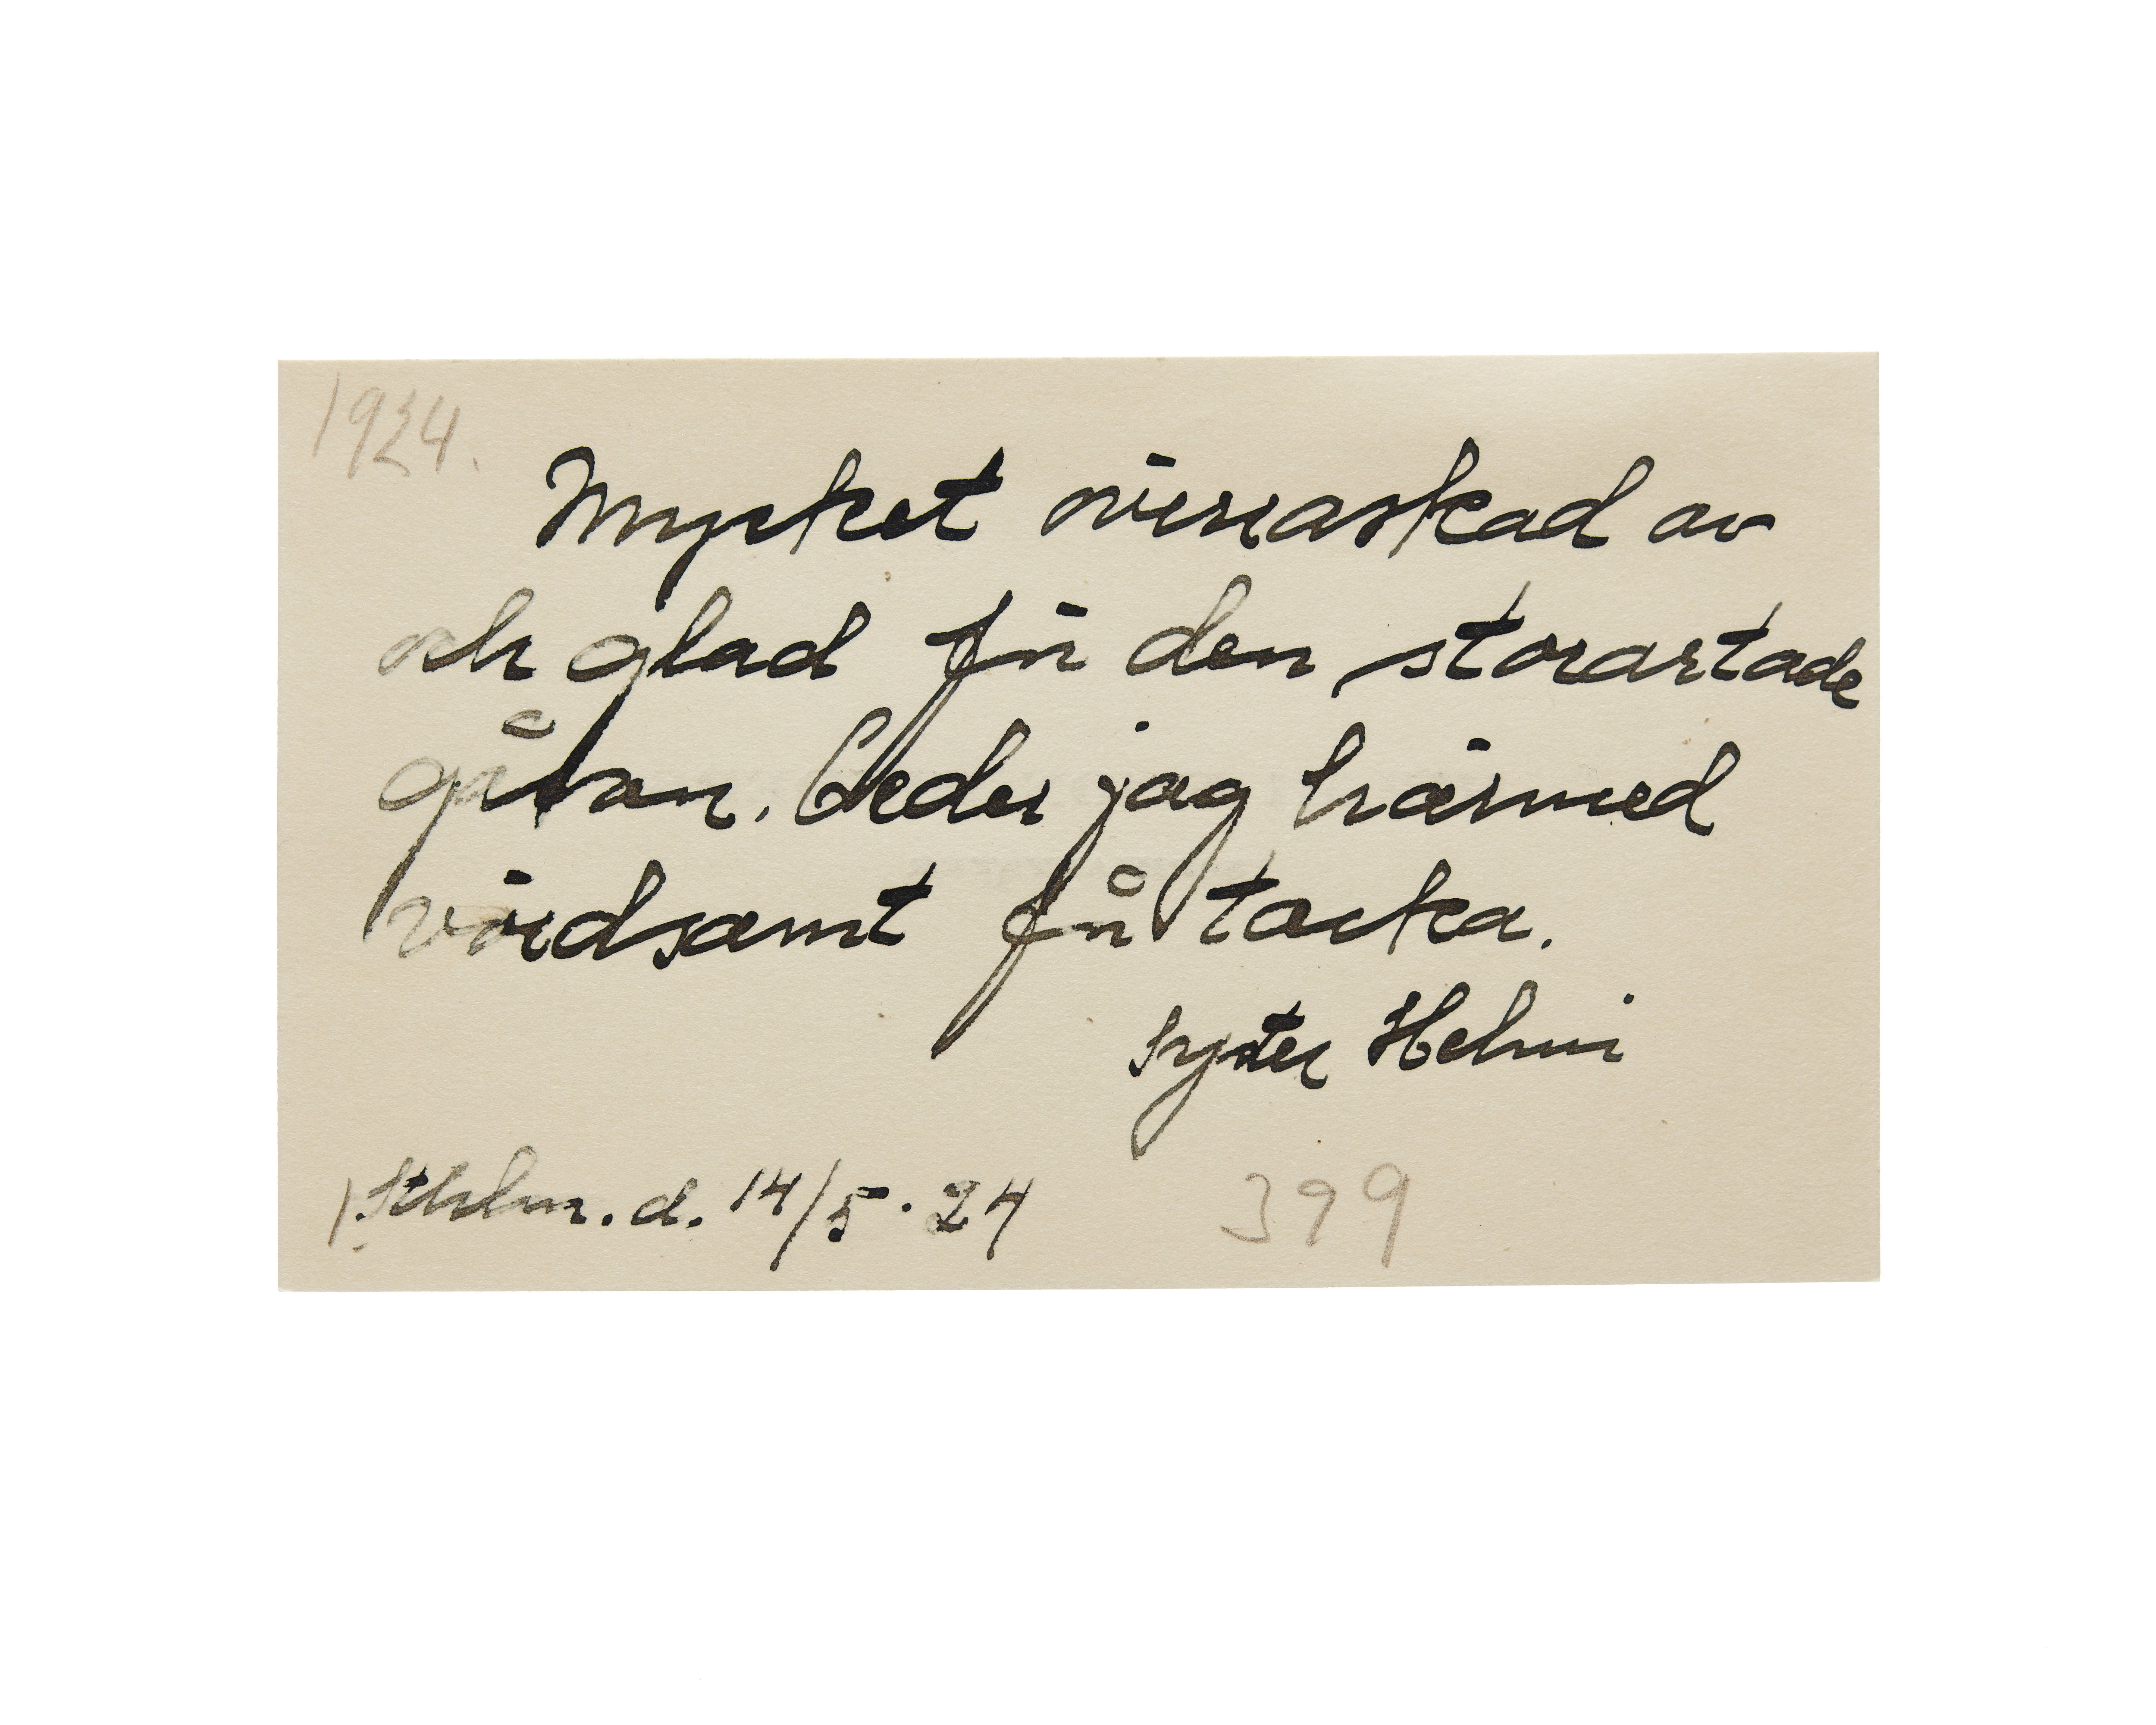 1924.
Mycket överraskad av
och glad för den storartade
gåvan. Beder jag härmed
vördsamt få tacka.
Syster Helmi
Sthlm. d. 14/5. 24
399